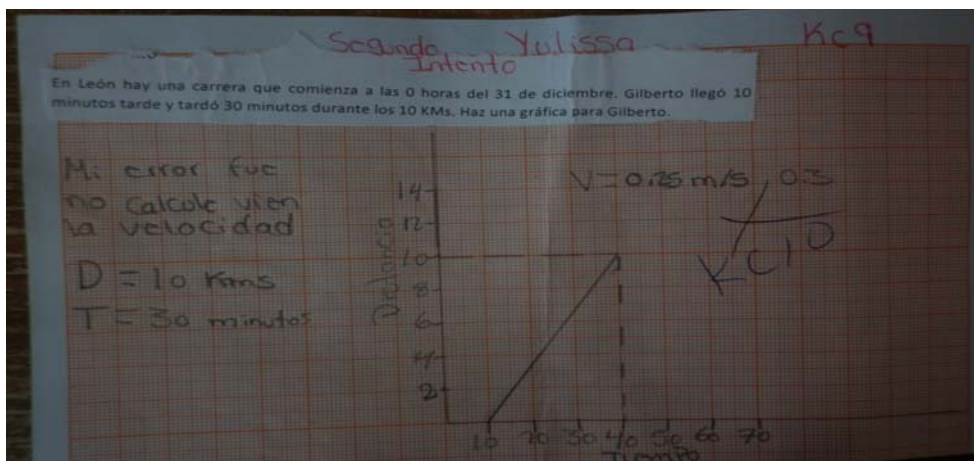 Segundo Yulissa Kc9
Intento
En León hay una carrera que comienza a las 0 horas del 31 de diciembre. Gilberto llegó 10
minutos tarde y tardó 30 minutos durante los 10 KMs. Haz una gráfica para Gilberto.
Mi error fue
no calcule vien
la velocidad
D = 10 Kms
T = 30 minutos
V = 0.25 m/s, 0.3
KC10
Distancia
14
12
10
8
6
4
2
10 20 30 40 50 60 70
Tiempo